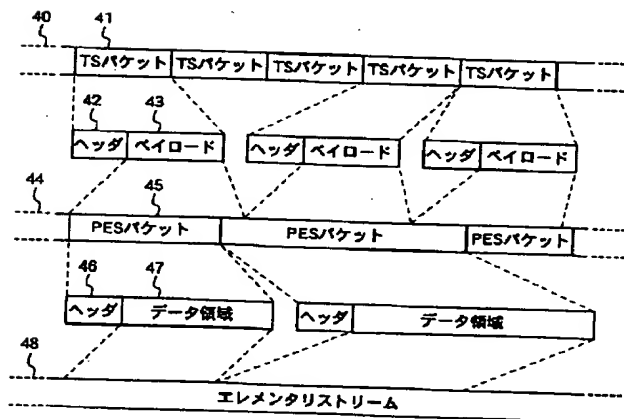 40 41
TSパケット TSパケット TSパケット TSパケット TSパケット
42 43
ヘッダ ペイロード ヘッダ ペイロード ヘッダ ペイロード
44 45
PESパケット PESパケット PESパケット
46 47
ヘッダ データ領域 ヘッダ データ領域
48
エレメンタリストリーム